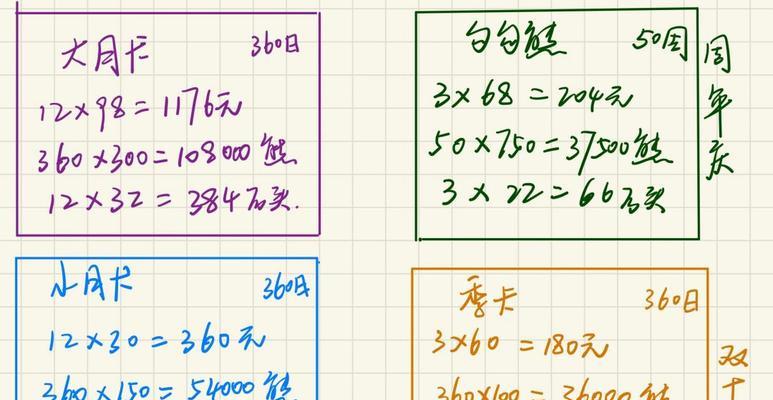 大月卡 360日
12×98=1176元
360×300=108000熊
12×32=384石头.
勾勾熊 50周
3×68=204元
50×750=37500熊
3×22=66石头
周年庆
小月卡 360日
12×30=360元
360×150=54000熊
季卡 360日
3×60=180元
360×100=36000熊
双十